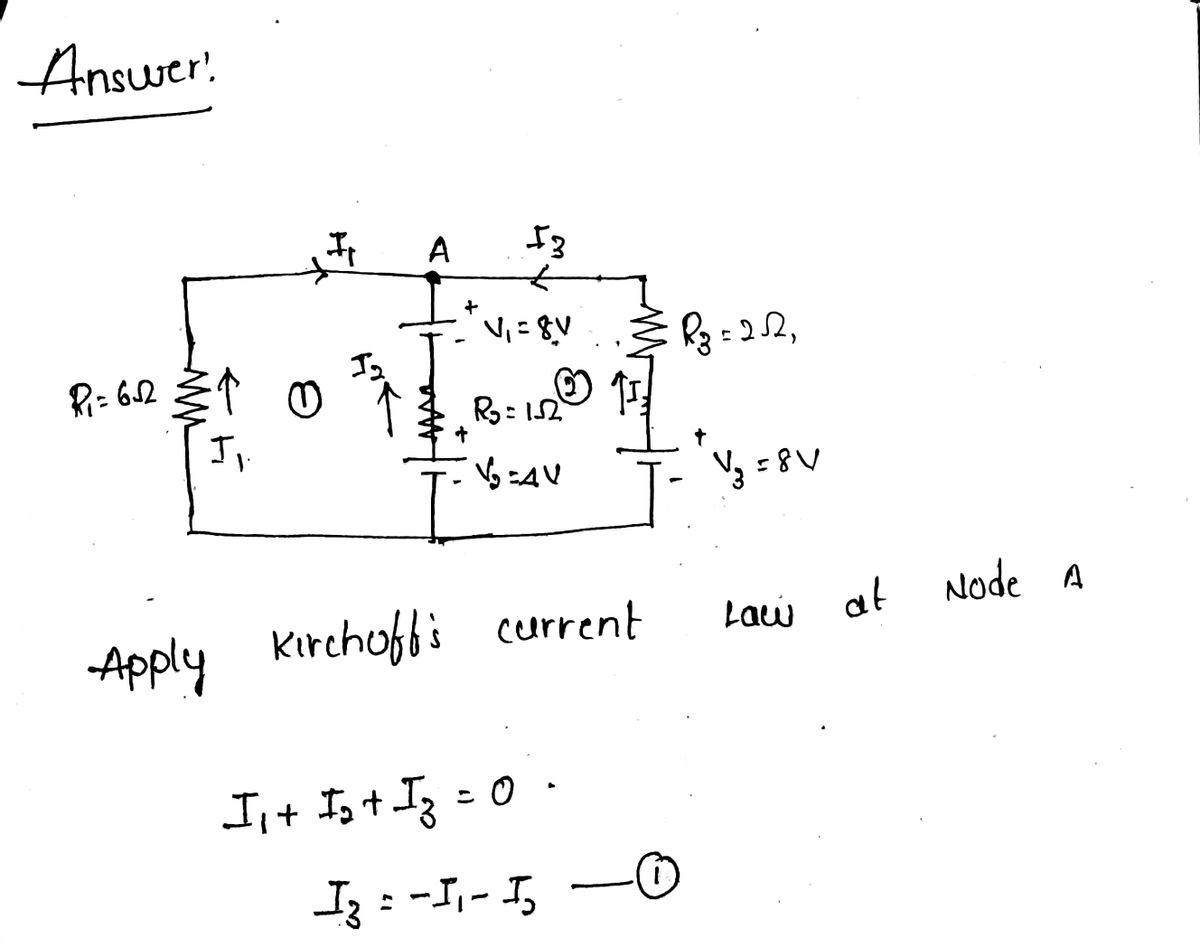 Answer:
I1 A I3
+
V1 = 8V
-
R3 = 2Ω,
R1 = 6Ω
I1
①
I2
R2 = 1Ω
②
I3
+
V2 = 4V
-
+
V3 = 8V
-
Apply Kirchoff's current Law at Node A
I1 + I2 + I3 = 0
I3 = -I1 - I2 — ①